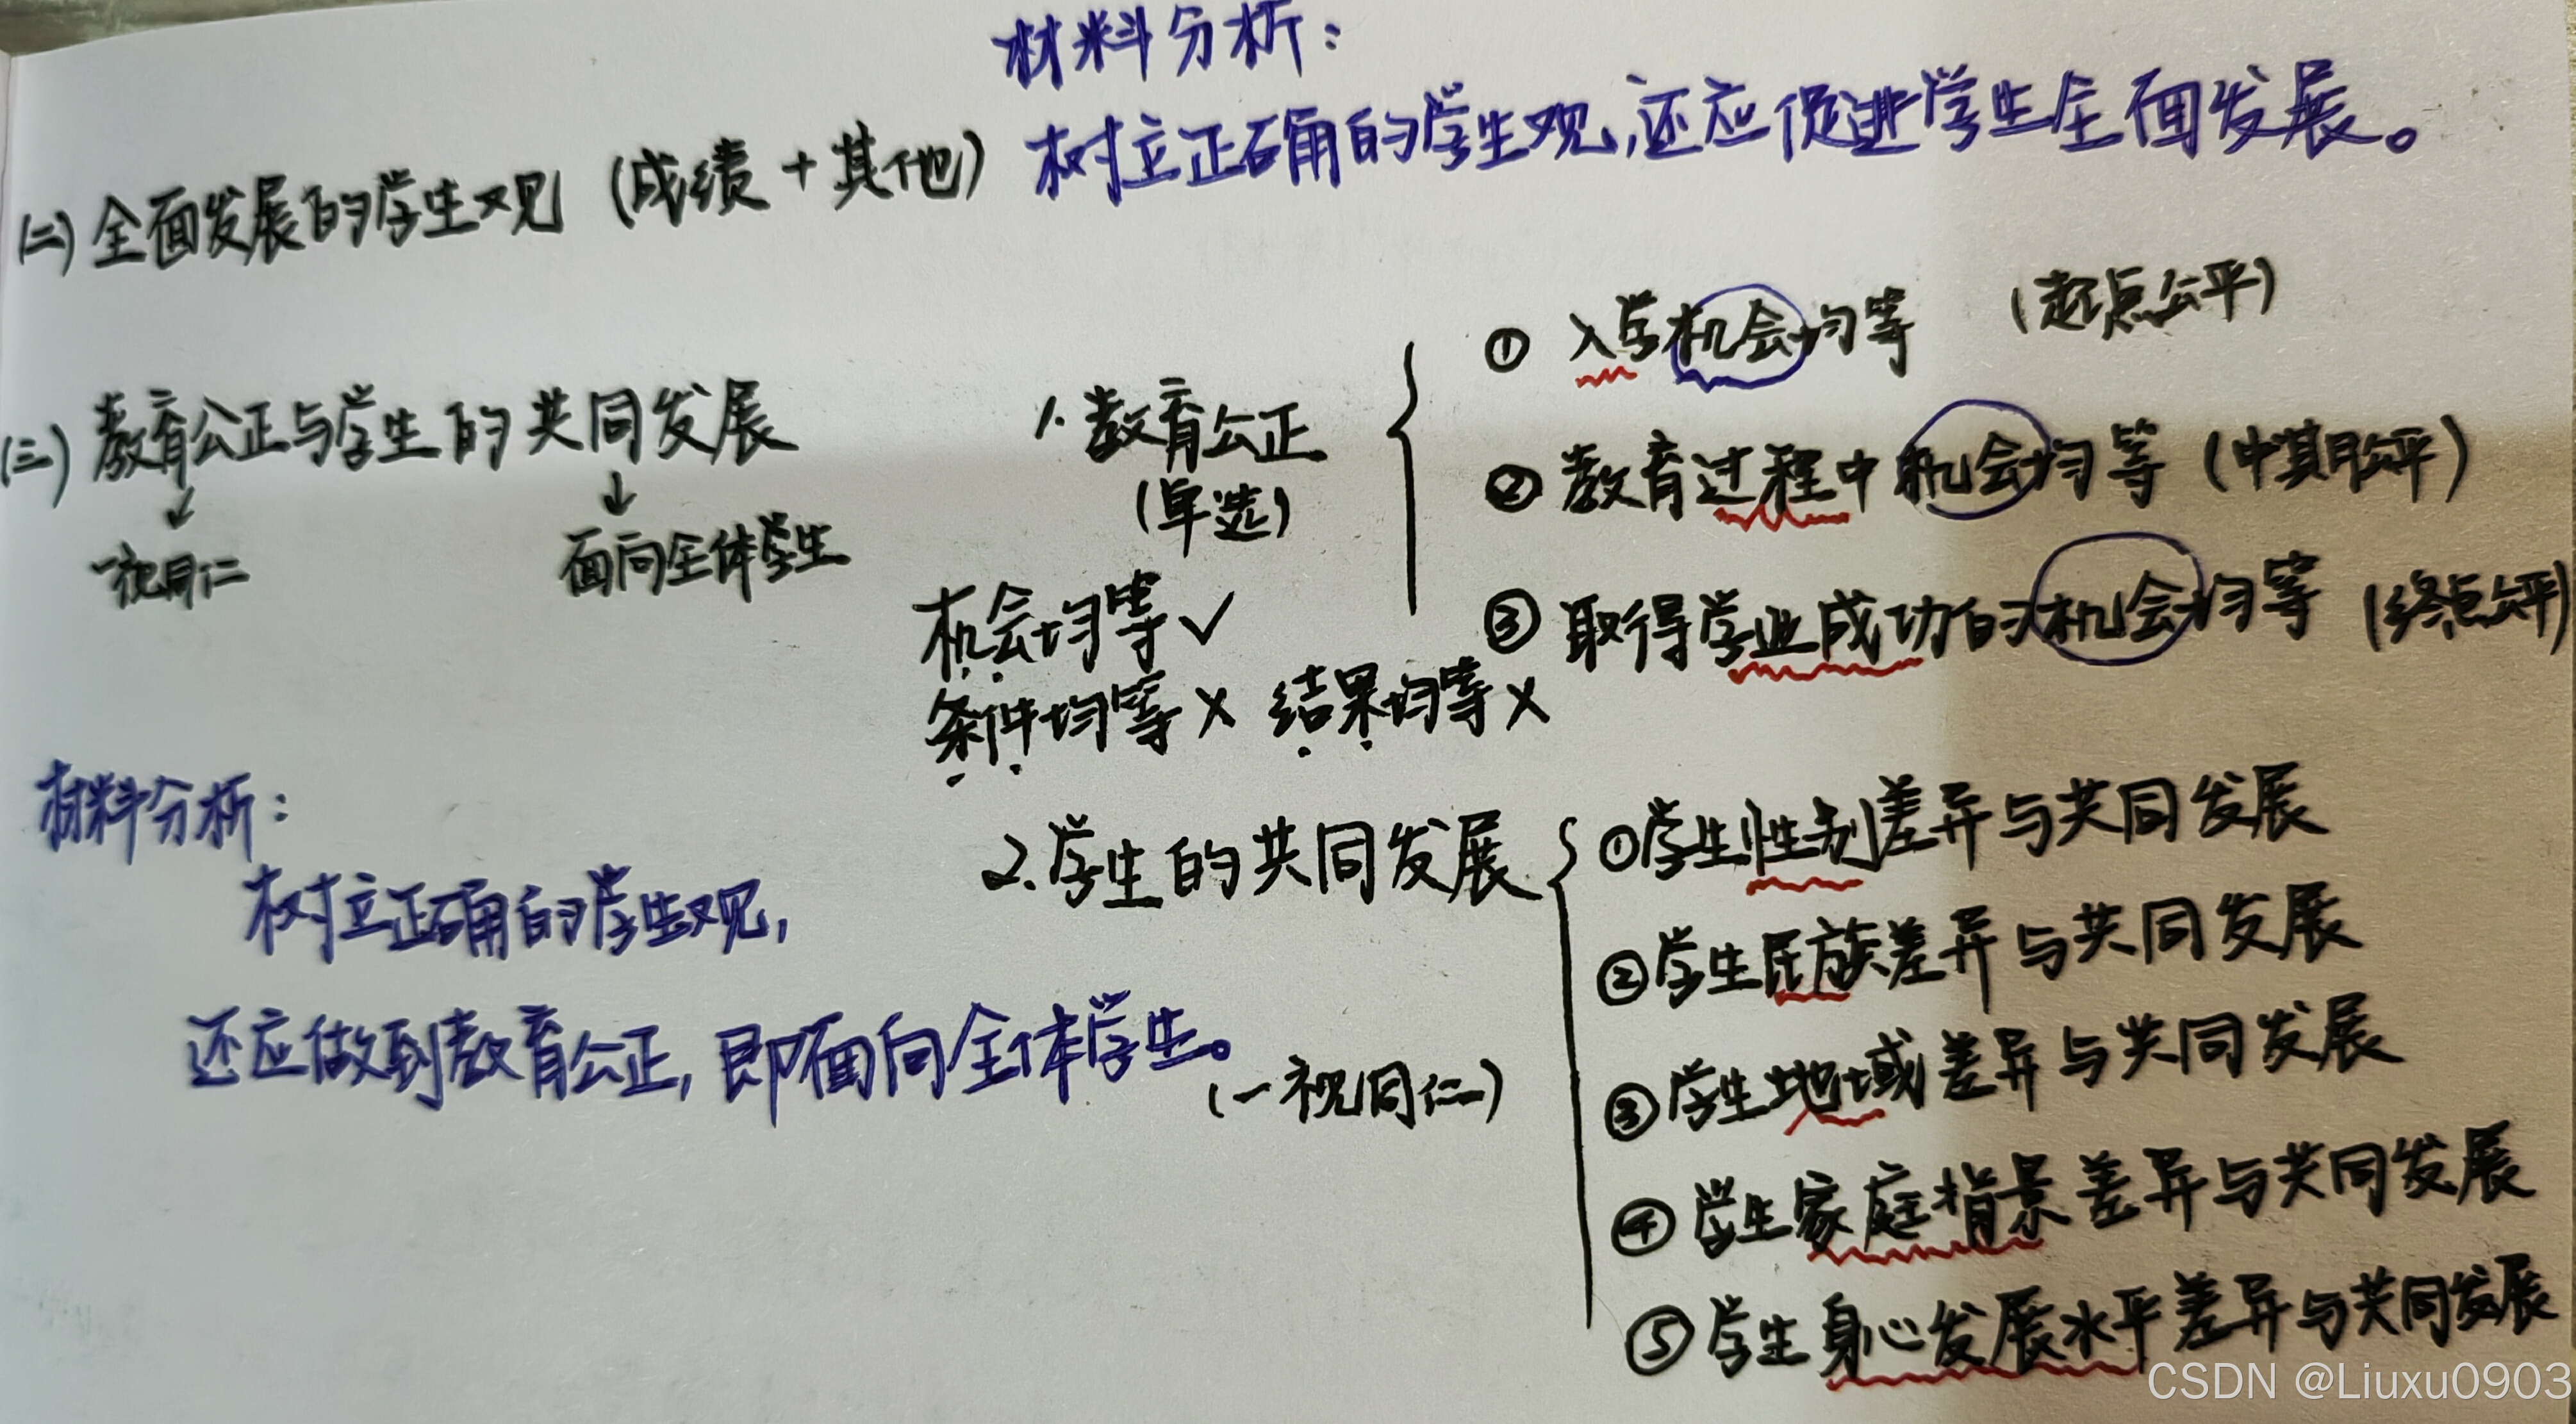 材料分析：
(二) 全面发展的学生观 (成绩 + 其他) 树立正确的学生观，还应促进学生全面发展。
(三) 教育公正与学生的共同发展
↓ ↓
一视同仁 面向全体学生
1. 教育公正
(单选)
① 入学机会均等 (起点公平)
② 教育过程中机会均等 (中期公平)
③ 取得学业成功的机会均等 (终点公平)
机会均等 ✓
条件均等 × 结果均等 ×
材料分析：
树立正确的学生观，
还应做到教育公正，即面向全体学生。
(一视同仁)
2. 学生的共同发展
① 学生性别差异与共同发展
② 学生民族差异与共同发展
③ 学生地域差异与共同发展
④ 学生家庭背景差异与共同发展
⑤ 学生身心发展水平差异与共同发展
CSDN @Liuxu0903